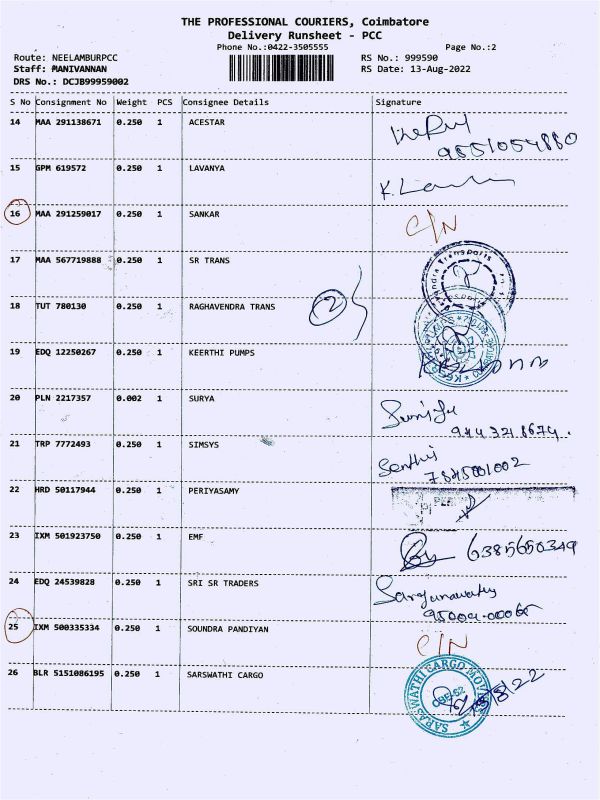 THE PROFESSIONAL COURIERS, Coimbatore
Delivery Runsheet - PCC
Phone No.:0422-3505555 Page No.:2
Route: NEELAMBURPCC RS No.: 999590
Staff: MANIVANNAN RS Date: 13-Aug-2022
DRS No.: DCJB99959002
S No Consignment No Weight PCS Consignee Details Signature
14 MAA 291138671 0.250 1 ACESTAR
9551054880
15 GPM 619572 0.250 1 LAVANYA
16 MAA 291259017 0.250 1 SANKAR C/N
17 MAA 567719888 0.250 1 SR TRANS
18 TUT 780130 0.250 1 RAGHAVENDRA TRANS 2
19 EDQ 12250267 0.250 1 KEERTHI PUMPS
20 PLN 2217357 0.002 1 SURYA
21 TRP 7772493 0.250 1 SIMSYS Senthil
7845001002
22 HRD 50117944 0.250 1 PERIYASAMY
23 IXM 501923750 0.250 1 EMF 6385650349
24 EDQ 24539828 0.250 1 SRI SR TRADERS
25 IXM 500335334 0.250 1 SOUNDRA PANDIYAN C/N
26 BLR 5151086195 0.250 1 SARSWATHI CARGO SARASWATHI CARGO